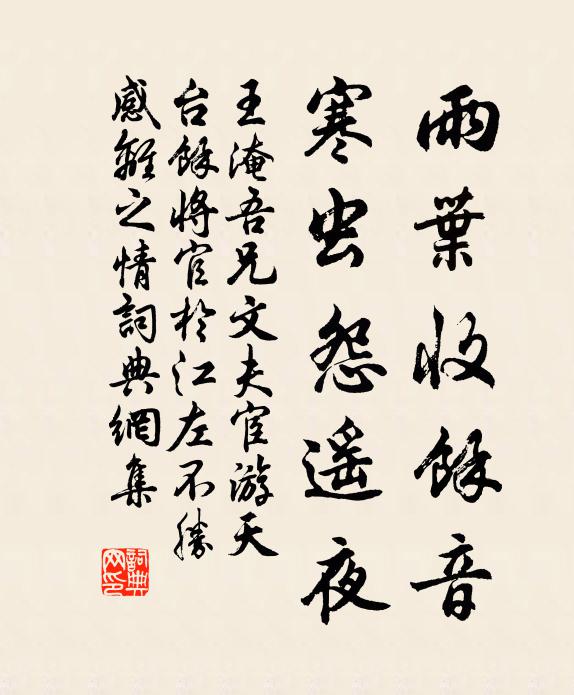 雨葉收餘音
寒虫怨遥夜
王淹吾兄文夫宦游天
台餘將官於江左不勝
感離之情詞典網集
詞典網印